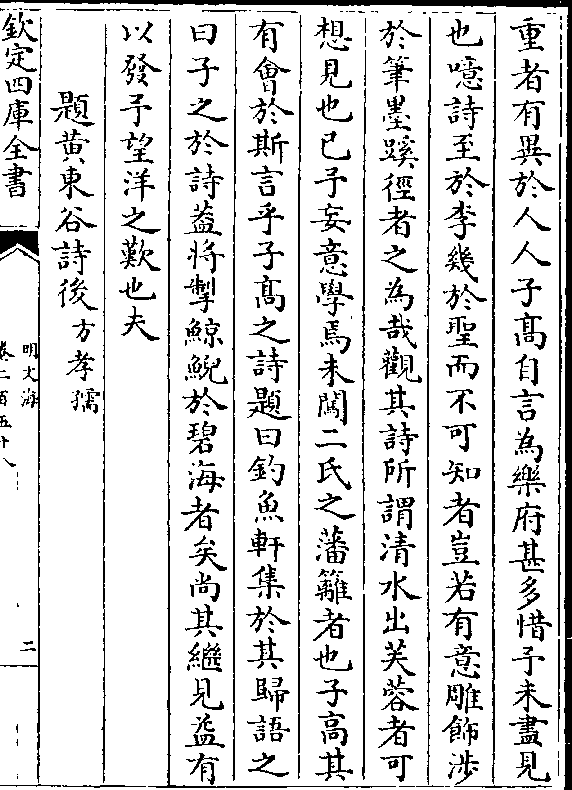 重者有異於人人子髙自言為樂府甚多惜予未盡見
也噫詩至於李幾於聖而不可知者豈若有意雕飾涉
於筆墨蹊徑者之為哉觀其詩所謂清水出芙蓉者可
想見也已予妄意學焉未闖二氏之藩籬者也子高其
有㑹於斯言乎子髙之詩題曰釣魚軒集於其歸語之
曰子之於詩葢將掣鯨鯢於碧海者矣尚其繼見益有
以發予望洋之歎也夫
題黄東谷詩後 方孝孺
欽定四庫全書
明文海
卷二百五十八
二